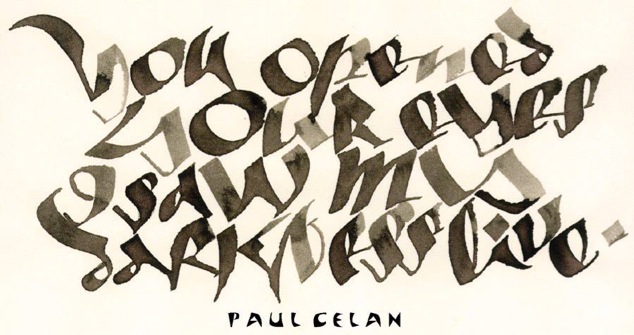 You opened
your eyes
I saw my
darkness live.
PAUL CELAN